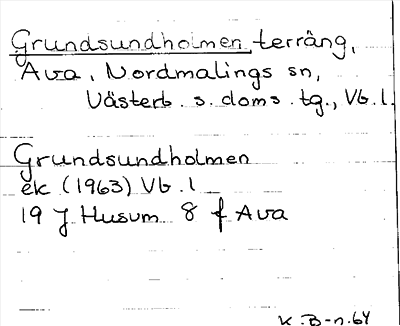 Grundsundholmen, terräng,
Ava, Nordmalings sn,
Västerb. s. doms. tg., Vb. l.
Grundsundholmen
ek (1963) Vb. l
19 J Husum 8 f Ava
K. B-n. 64